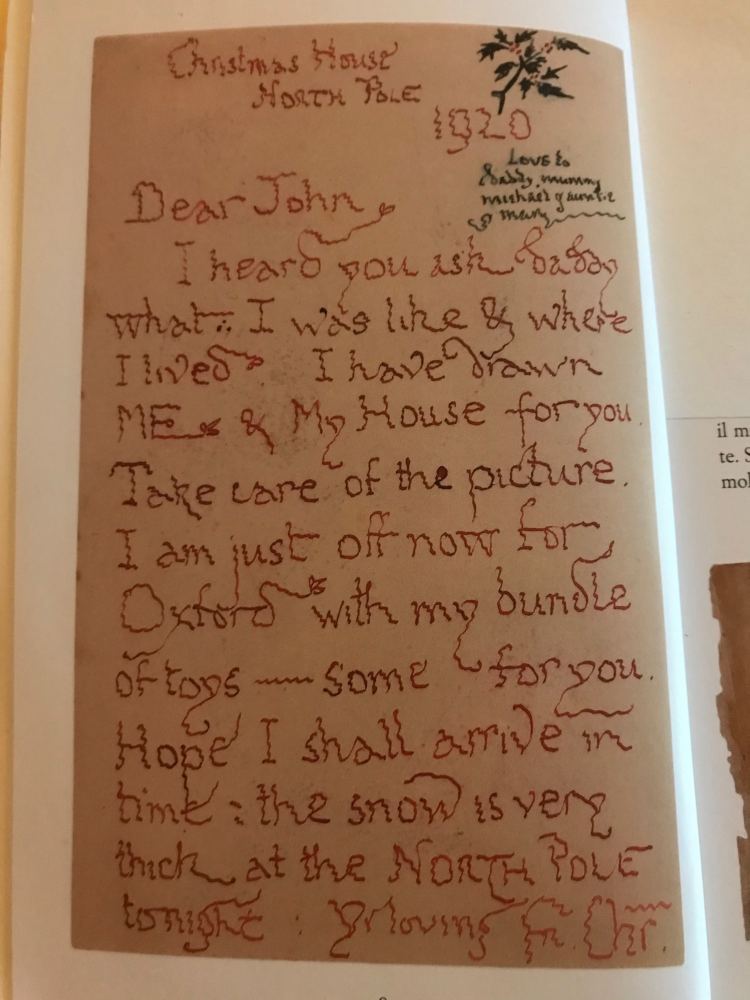 Christmas House
NORTH POLE
1920
Love to
daddy, mummy
michael & auntie
mary
Dear John
I heard you ask daddy
what I was like & where
I lived. I have drawn
ME & My House for you.
Take care of the picture.
I am just off now for
Oxford with my bundle
of toys — some for you.
Hope I shall arrive in
time : the snow is very
thick at the NORTH POLE
tonight : Yr loving Fr. Chr.
il m
te. S
mol